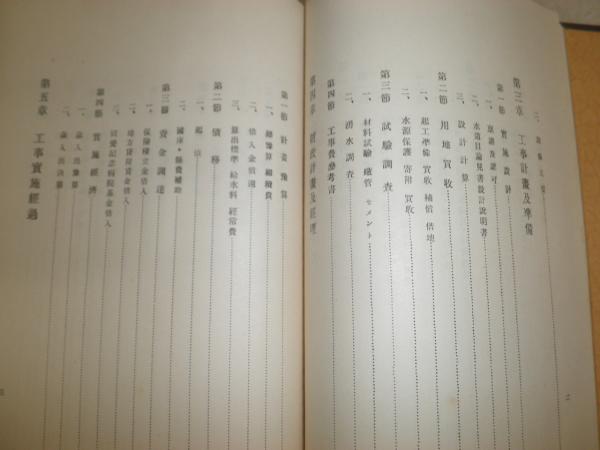 第三章 工事計畫及準備
第一節 實施設計
一、稟請及認可
二、水道目論見書設計說明書
三、設計計算
第二節 用地買收
一、起工準備 買收 補償 借地
二、水源保護 寄附 買收
第三節 試驗調査
一、材料試驗 鐵管 セメント
二、湧水調査
第四節 工事費參考書
第四章 財政計畫及經理
第一節 計畫豫算
一、總豫算 繼續費
二、借入金償還
三、算出標準 給水料 經常費
第二節 債務
一、起債
二、國庫・縣費補助
第三節 資金調達
一、保險積立金借入
二、地方貸附資金借入
三、同愛記念病院基金借入
第四節 實施經濟
一、歲入出豫算
二、歲入出決算
第五章 工事實施經過